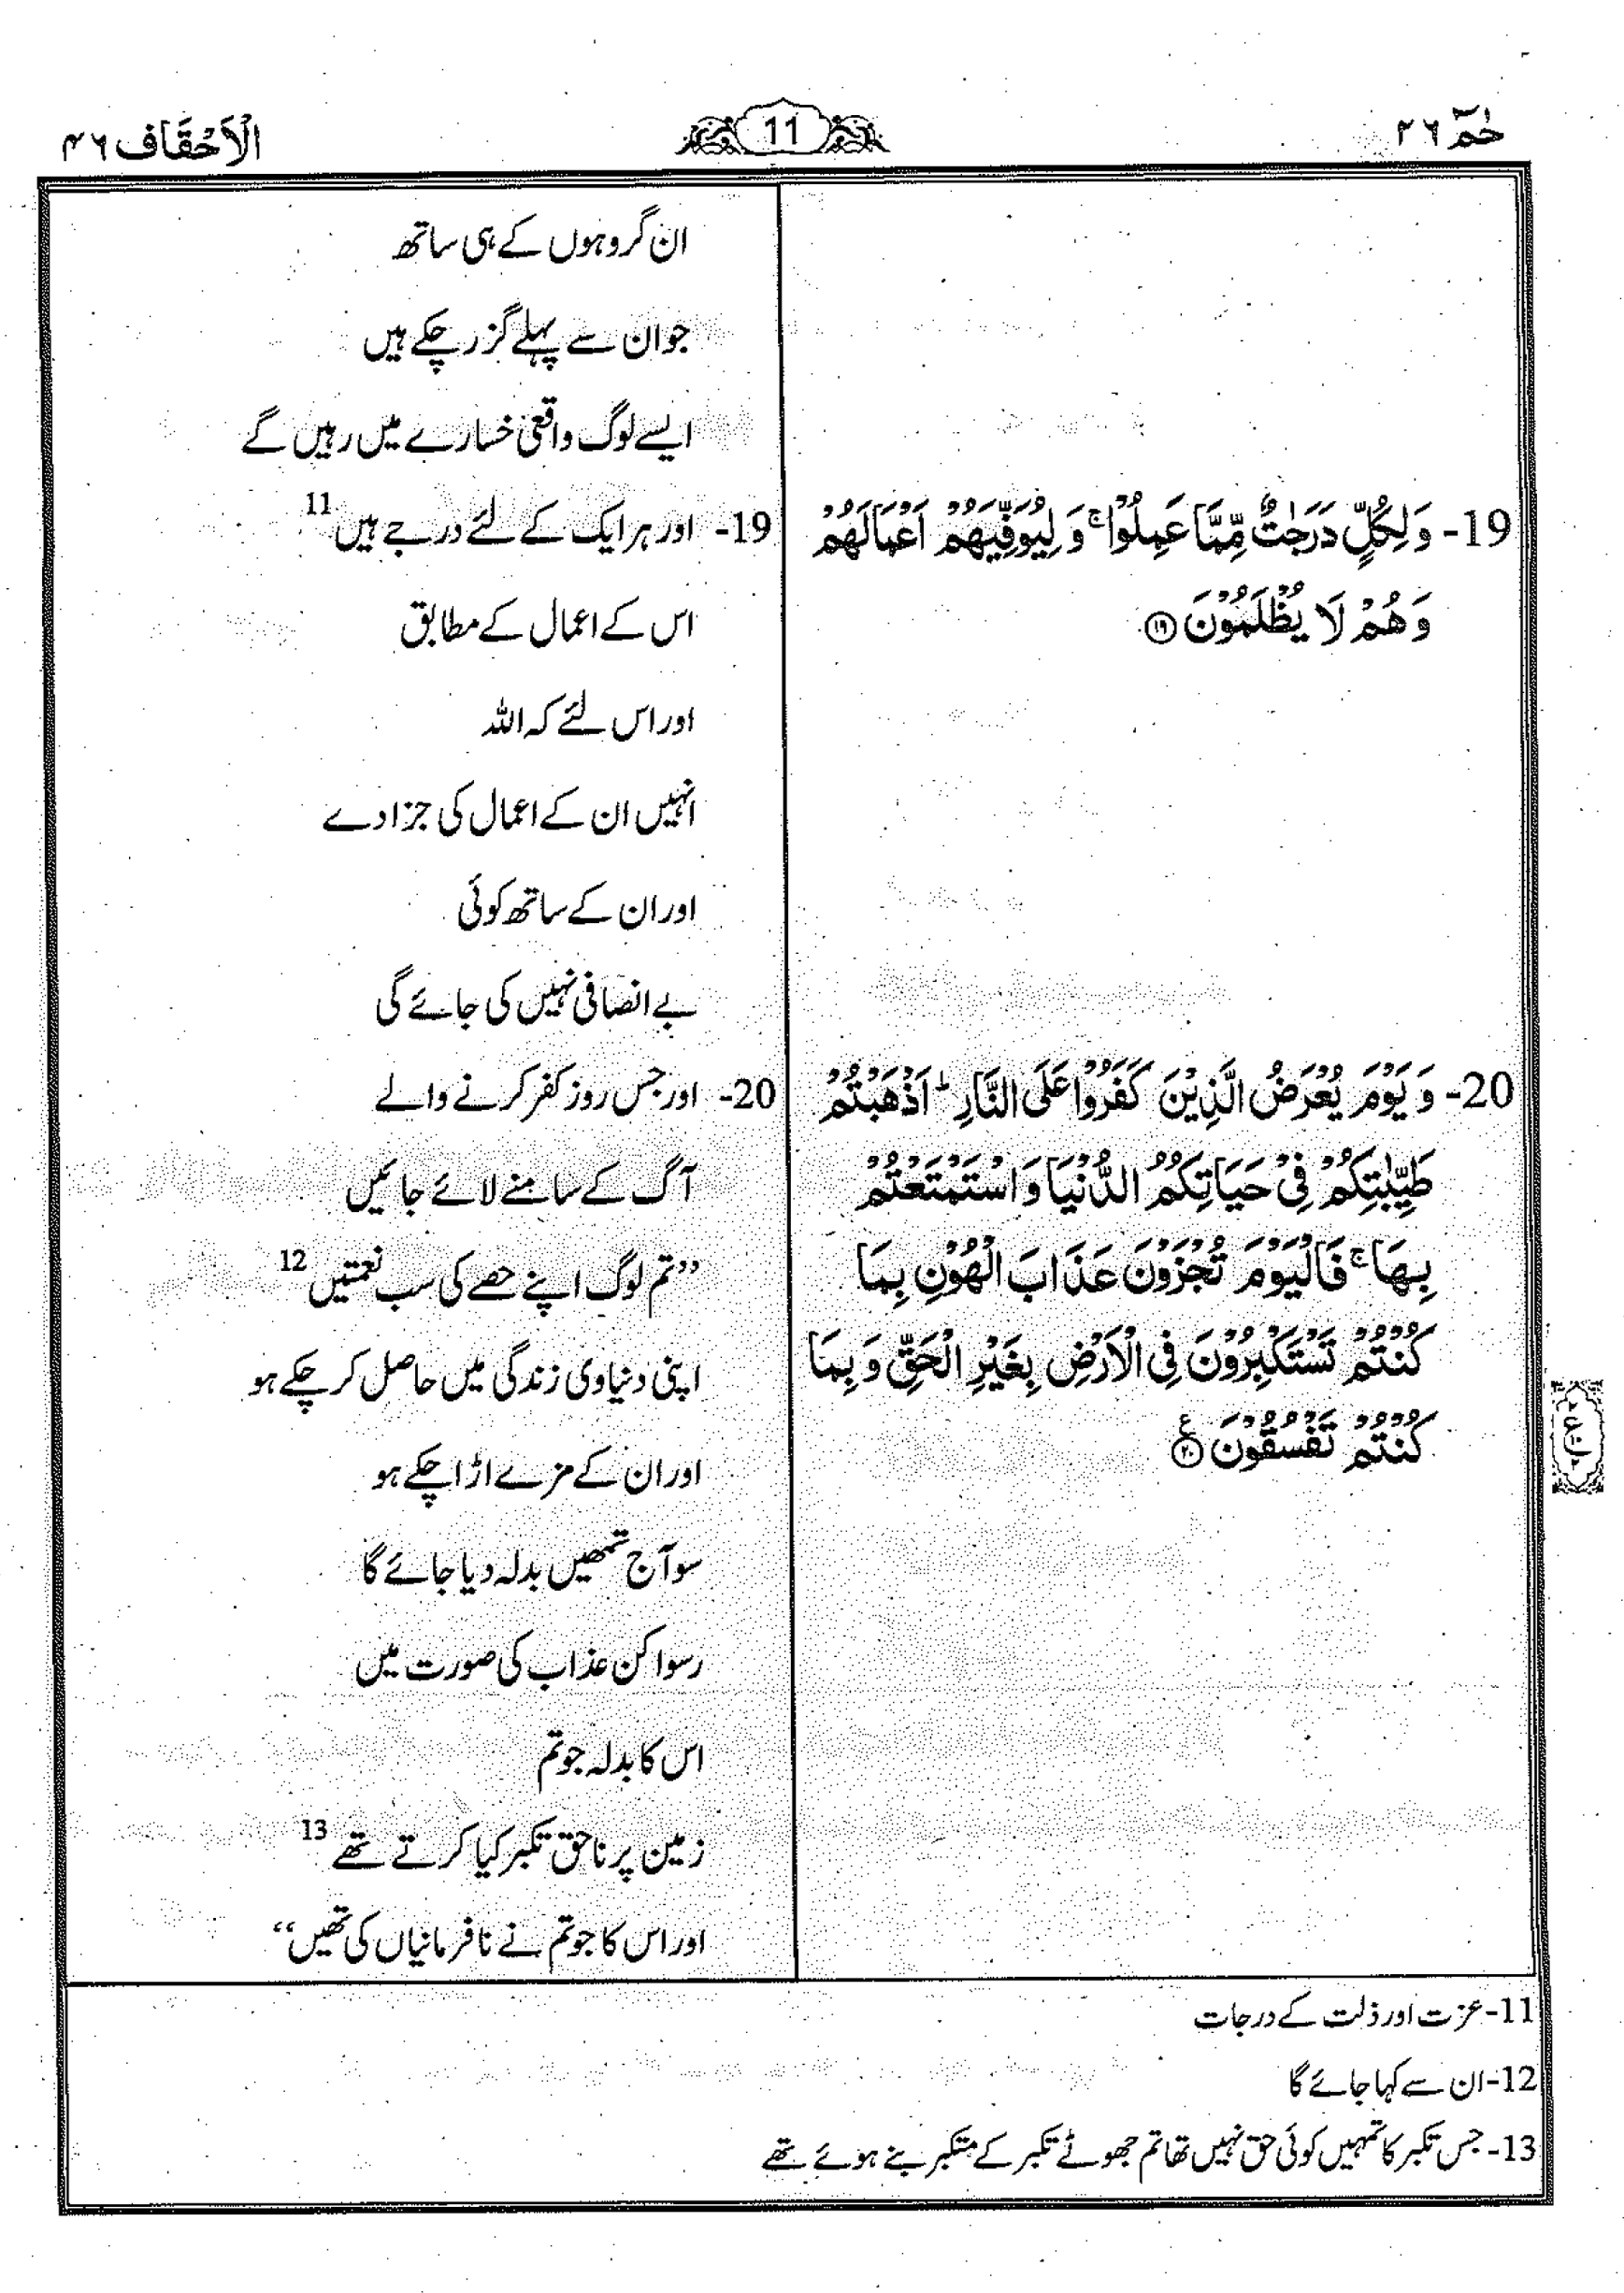 حٰمٓ ۲٦
11
الْاَحْقَاف ۴٦
19- وَ لِكُلٍّ دَرَجٰتٌ مِّمَّا عَمِلُوْا ۚ وَ لِيُوَفِّيَهُمْ اَعْمَالَهُمْ
وَ هُمْ لَا يُظْلَمُوْنَ ۝۱۹
20- وَ يَوْمَ يُعْرَضُ الَّذِيْنَ كَفَرُوْا عَلَى النَّارِ ؕ اَذْهَبْتُمْ
طَيِّبٰتِكُمْ فِیْ حَيَاتِكُمُ الدُّنْيَا وَ اسْتَمْتَعْتُمْ
بِهَا ۚ فَالْيَوْمَ تُجْزَوْنَ عَذَابَ الْهُوْنِ بِمَا
كُنْتُمْ تَسْتَكْبِرُوْنَ فِی الْاَرْضِ بِغَيْرِ الْحَقِّ وَ بِمَا
كُنْتُمْ تَفْسُقُوْنَ ۝۲۰ ع
ان گروہوں کے ہی ساتھ
جو ان سے پہلے گزر چکے ہیں
ایسے لوگ واقعی خسارے میں رہیں گے
19- اور ہر ایک کے لئے درجے ہیں 11
اس کے اعمال کے مطابق
اور اس لئے کہ اللہ
انہیں ان کے اعمال کی جزا دے
اور ان کے ساتھ کوئی
بے انصافی نہیں کی جائے گی
20- اور جس روز کفر کرنے والے
آگ کے سامنے لائے جائیں
”تم لوگ اپنے حصے کی سب نعمتیں 12
اپنی دنیاوی زندگی میں حاصل کر چکے ہو
اور ان کے مزے اڑا چکے ہو
سو آج تمھیں بدلہ دیا جائے گا
رسوا کن عذاب کی صورت میں
اس کا بدلہ جو تم
زمین پر ناحق تکبر کیا کرتے تھے 13
اور اس کا جو تم نے نافرمانیاں کی تھیں“
11- عزت اور ذلت کے درجات
12- ان سے کہا جائے گا
13- جس تکبر کا تمہیں کوئی حق نہیں تھا تم جھوٹے تکبر کے متکبر بنے ہوئے تھے